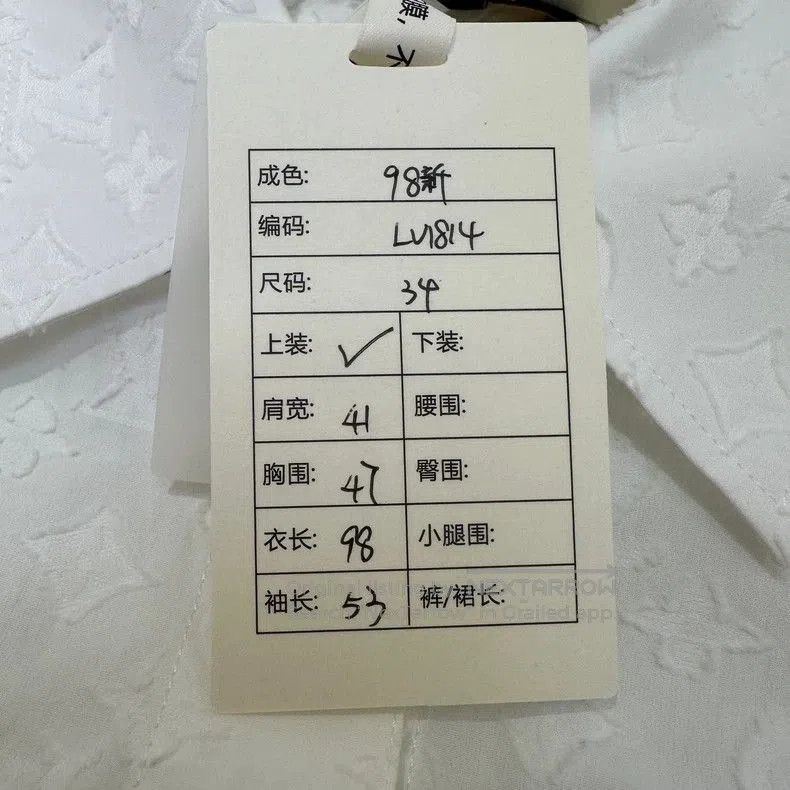 憾, 不
成色: 98新
编码: LV1814
尺码: 34
上装: ✓ 下装:
肩宽: 41 腰围:
胸围: 47 臀围:
衣长: 98 小腿围:
袖长: 53 裤/裙长:
Original listing by NEXTARROW
in Grailed app